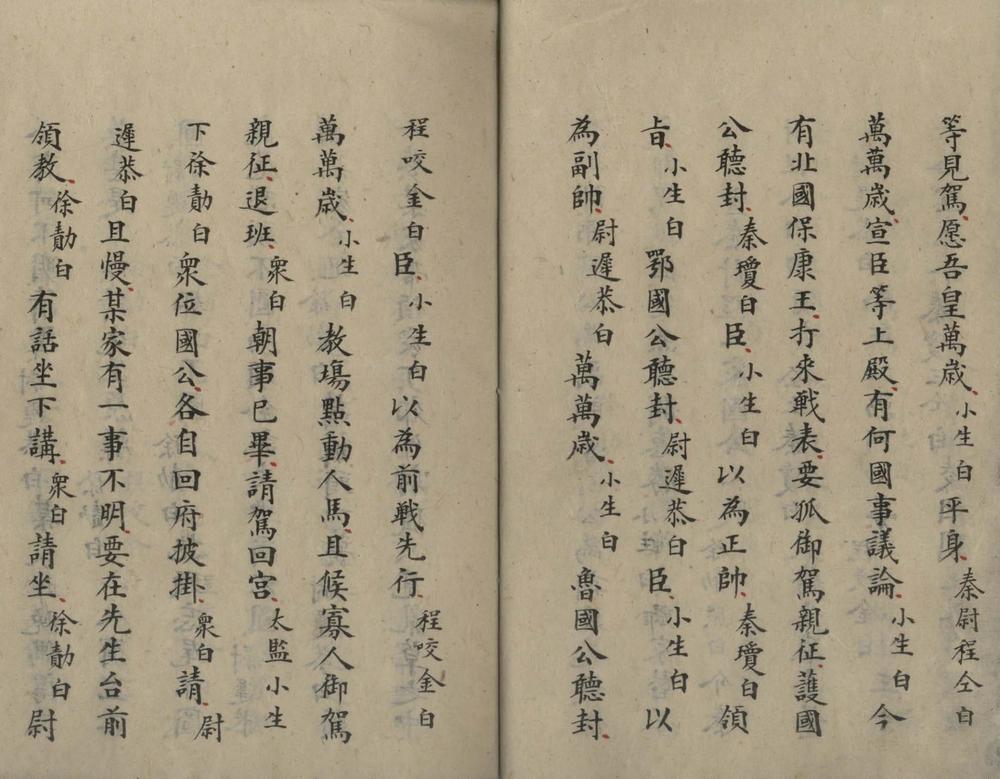 等見駕愿吾皇萬歲小生白平身秦尉程仝白
萬萬歲宣臣等上殿有何國事議論小生白今
有北國保康王打來戰表要孤御駕親征護國
公聽封秦瓊白臣小生白以為正帥秦瓊白領
旨小生白鄂國公聽封尉遲恭白臣小生白以
為副帥尉遲恭白萬萬歲小生白魯國公聽封
程咬金白臣小生白以為前戰先行程咬金白
萬萬歲小生白教塲點動人馬且候寡人御駕
親征退班衆白朝事已畢請駕回宮太監小生
下徐勣白衆位國公各自回府披掛衆白請尉
遲恭白且慢某家有一事不明要在先生台前
領教徐勣白有話坐下講衆白請坐徐勣白尉